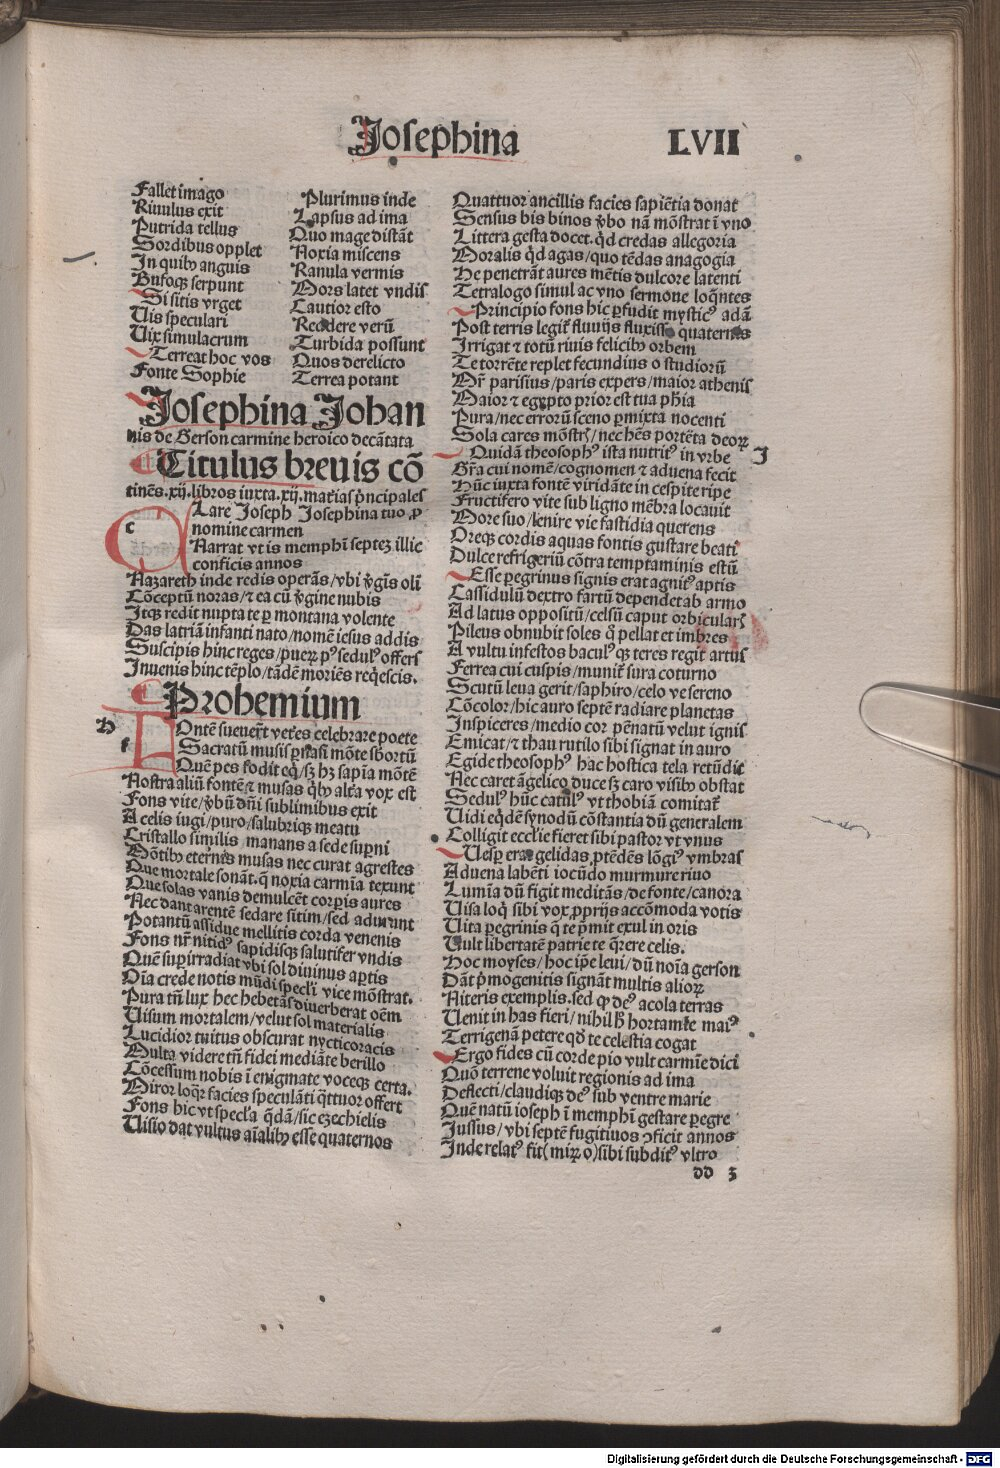 Josephina LVII
Fallet imago
Riuulus exit
Putrida tellus
Sordibus opplet
In quibꝰ anguis
Bufoqꝫ serpunt
Si sitis vrget
Uis speculari
Uix simulacrum
Terreat hoc vos
Fonte Sophie
Plurimus inde
Lapsus ad ima
Quo mage distāt
Noxia miscens
Ranula vermis
Mors latet vndis
Cautior esto
Reddere verū
Turbida possunt
Quos derelicto
Terrea potant
Josephina Johan
nis de Gerson carmine heroico decātata
Titulus breuis cō
tinēs .xij. libros iuxta .xij. matias pͥncipales
c Lare Joseph Josephina tuo ꝓ
nomine carmen
Narrat vt is memphī septeʒ illic
conficis annos
Nazareth inde redis operās/vbi v̓gīs oli
Cōceptū noras/⁊ ea cū v̓gine nubis
Itqꝫ redit nupta te ꝑ montana volente
Das latriā infanti nato/nomē iesus addis
Suscipis hinc reges/pueꝝ pꝰ sedulꝰ offers
Inuenis hinc tēplo/tādē moriēs req̓escis.
Prohemium
H
f Ontē sueuer̄t vet̓es celebrare poete
Sacratū musis ꝑnasi mōte sbortū
Quē pes fodit eq̓/sꝫ hꝫ sapīa mōtē
Nostra aliū fontē ⁊ musas q̓bꝰ alt̓a vox est
Fons vite/v̓bū dn̄i sublimibus exit
A celis iugi/puro/salubriqꝫ meatu
Cristallo similis/manans a sede sup̄ni
Mōtibꝰ eternēs musas nec curat agrestes
Que mortale sonāt. q̄ noxia carmīa texunt
Que solas vanis demulcēt corꝑis aures
Nec dant arentē sedare sitim/sed adurunt
Potantū assidue mellitis corda venenis
Fons nr̄ nitidꝰ sapidisqꝫ salutifer vndis
Quē suꝑirradiat vbi sol diuinus aꝑtis
Oīa crede notis mūdi specl̓i vice mōstrat.
Pura tn̄ lux hec hebetās diuerberat oēm
Uisum mortalem/velut sol materialis
Lucidior tuitus obscurat nycticoracis
Multa videre tn̄ fidei mediāte berillo
Cōcessum nobis ī enigmate voceqꝫ certa.
Miror loq̄r facies speculāti q̄ttuor offert
Fons hic vt specl̓a q̄dā/sic ezechielis
Uisio dat vultus aīalibꝰ esse quaternos
Quattuor ancillis facies sapiētia donat
Sensus bis binos v̓bo nā mōstrat ī vno
Littera gesta docet. q̄d credas allegoria
Moralis q̄d agas/quo tēdas anagogia
He penetrāt aures mētis dulcore latenti
Tetralogo simul ac vno sermone loq̄ntes
Principio fons hic ꝑfudit mysticꝰ adā
Post terris legit̓ fluuijs fluxisse quaternis
Irrigat ⁊ totū riuis felicibꝰ orbem
Te torrēte replet fecundius o studiorū
Mr̄ parisius/paris expers/maior athenis
Maior ⁊ egypto prior est tua phīa
Pura/nec errorū sceno ꝑmixta nocenti
Sola cares mōstrꝭ/nec hn̄s portēta deoꝝ
Quidā theosophꝰ ista nutritꝰ in vrbe J
Gr̄a cui nomē/cognomen ⁊ aduena fecit
Hūc iuxta fontē viridāte in cespite ripe
Fructifero vite sub ligno mēbra locauit
More suo/lenire vie fastidia querens
Oreqꝫ cordis aquas fontis gustare beati
Dulce refrigeriū cōtra temptaminis estū
Esse ꝑegrinus signis erat agnitꝰ aptis
Cassidulū dextro fartū dependet ab armo
Ad latus oppositū/celsū caput orbicularꝭ
Pileus obnubit soles q̄ pellat et imbres
A vultu infestos baculꝰqꝫ teres regit artus
Ferrea cui cuspis/munit̓ sura coturno
Scutū leua gerit/saphiro/celo ve sereno
Cōcolor/hic auro septē radiare planetas
Inspiceres/medio cor pēnatū velut ignis
Emicat/⁊ thau rutilo sibi signat in auro
Egide theosophꝰ hac hostica tela retūdit
Nec caret āgelico duce sꝫ caro visibꝰ obstat
Sedulꝰ hūc catulꝰ vt thobiā comitat̓
Uidi eq̄dē synodū cōstantia dū generalem
Colligit eccl̓ie fieret sibi pastor vt vnus
Uesꝑ erat gelidas ꝓtēdēs lōgiꝰ vmbras
Aduena labēti iocūdo murmure riuo
Lumīa dū figit meditās/de fonte/canora
Uisa loq̄ sibi vox ꝓprijs accōmoda votis
Uita ꝑegrinis q̄ te ꝓmit exul in oris
Uult libertatē patrie te q̄rere celis.
Hoc moyses/hoc ip̄e leui/dū noīa gerson
Dāt pͥmogenitis signāt multis alioꝝ
Niteris exemplis. sed qꝫ deꝰ acola terras
Uenit in has fieri/nihil hͦ hortamīe maiꝰ
Terrigenā petere qd̓ te celestia cogat
Ergo fides cū corde pio vult carmīe dici
Quō terrene voluit regionis ad ima
Deflecti/claudiqꝫ deꝰ sub ventre marie
Quē natū ioseph ī memphī gestare ꝑegre
Jussus/vbi septē fugitiuos ꝯficit annos
Inde relatꝰ fit (miꝝ o) sibi subditꝰ vltro
dd 3
Digitalisierung gefördert durch die Deutsche Forschungsgemeinschaft - DFG